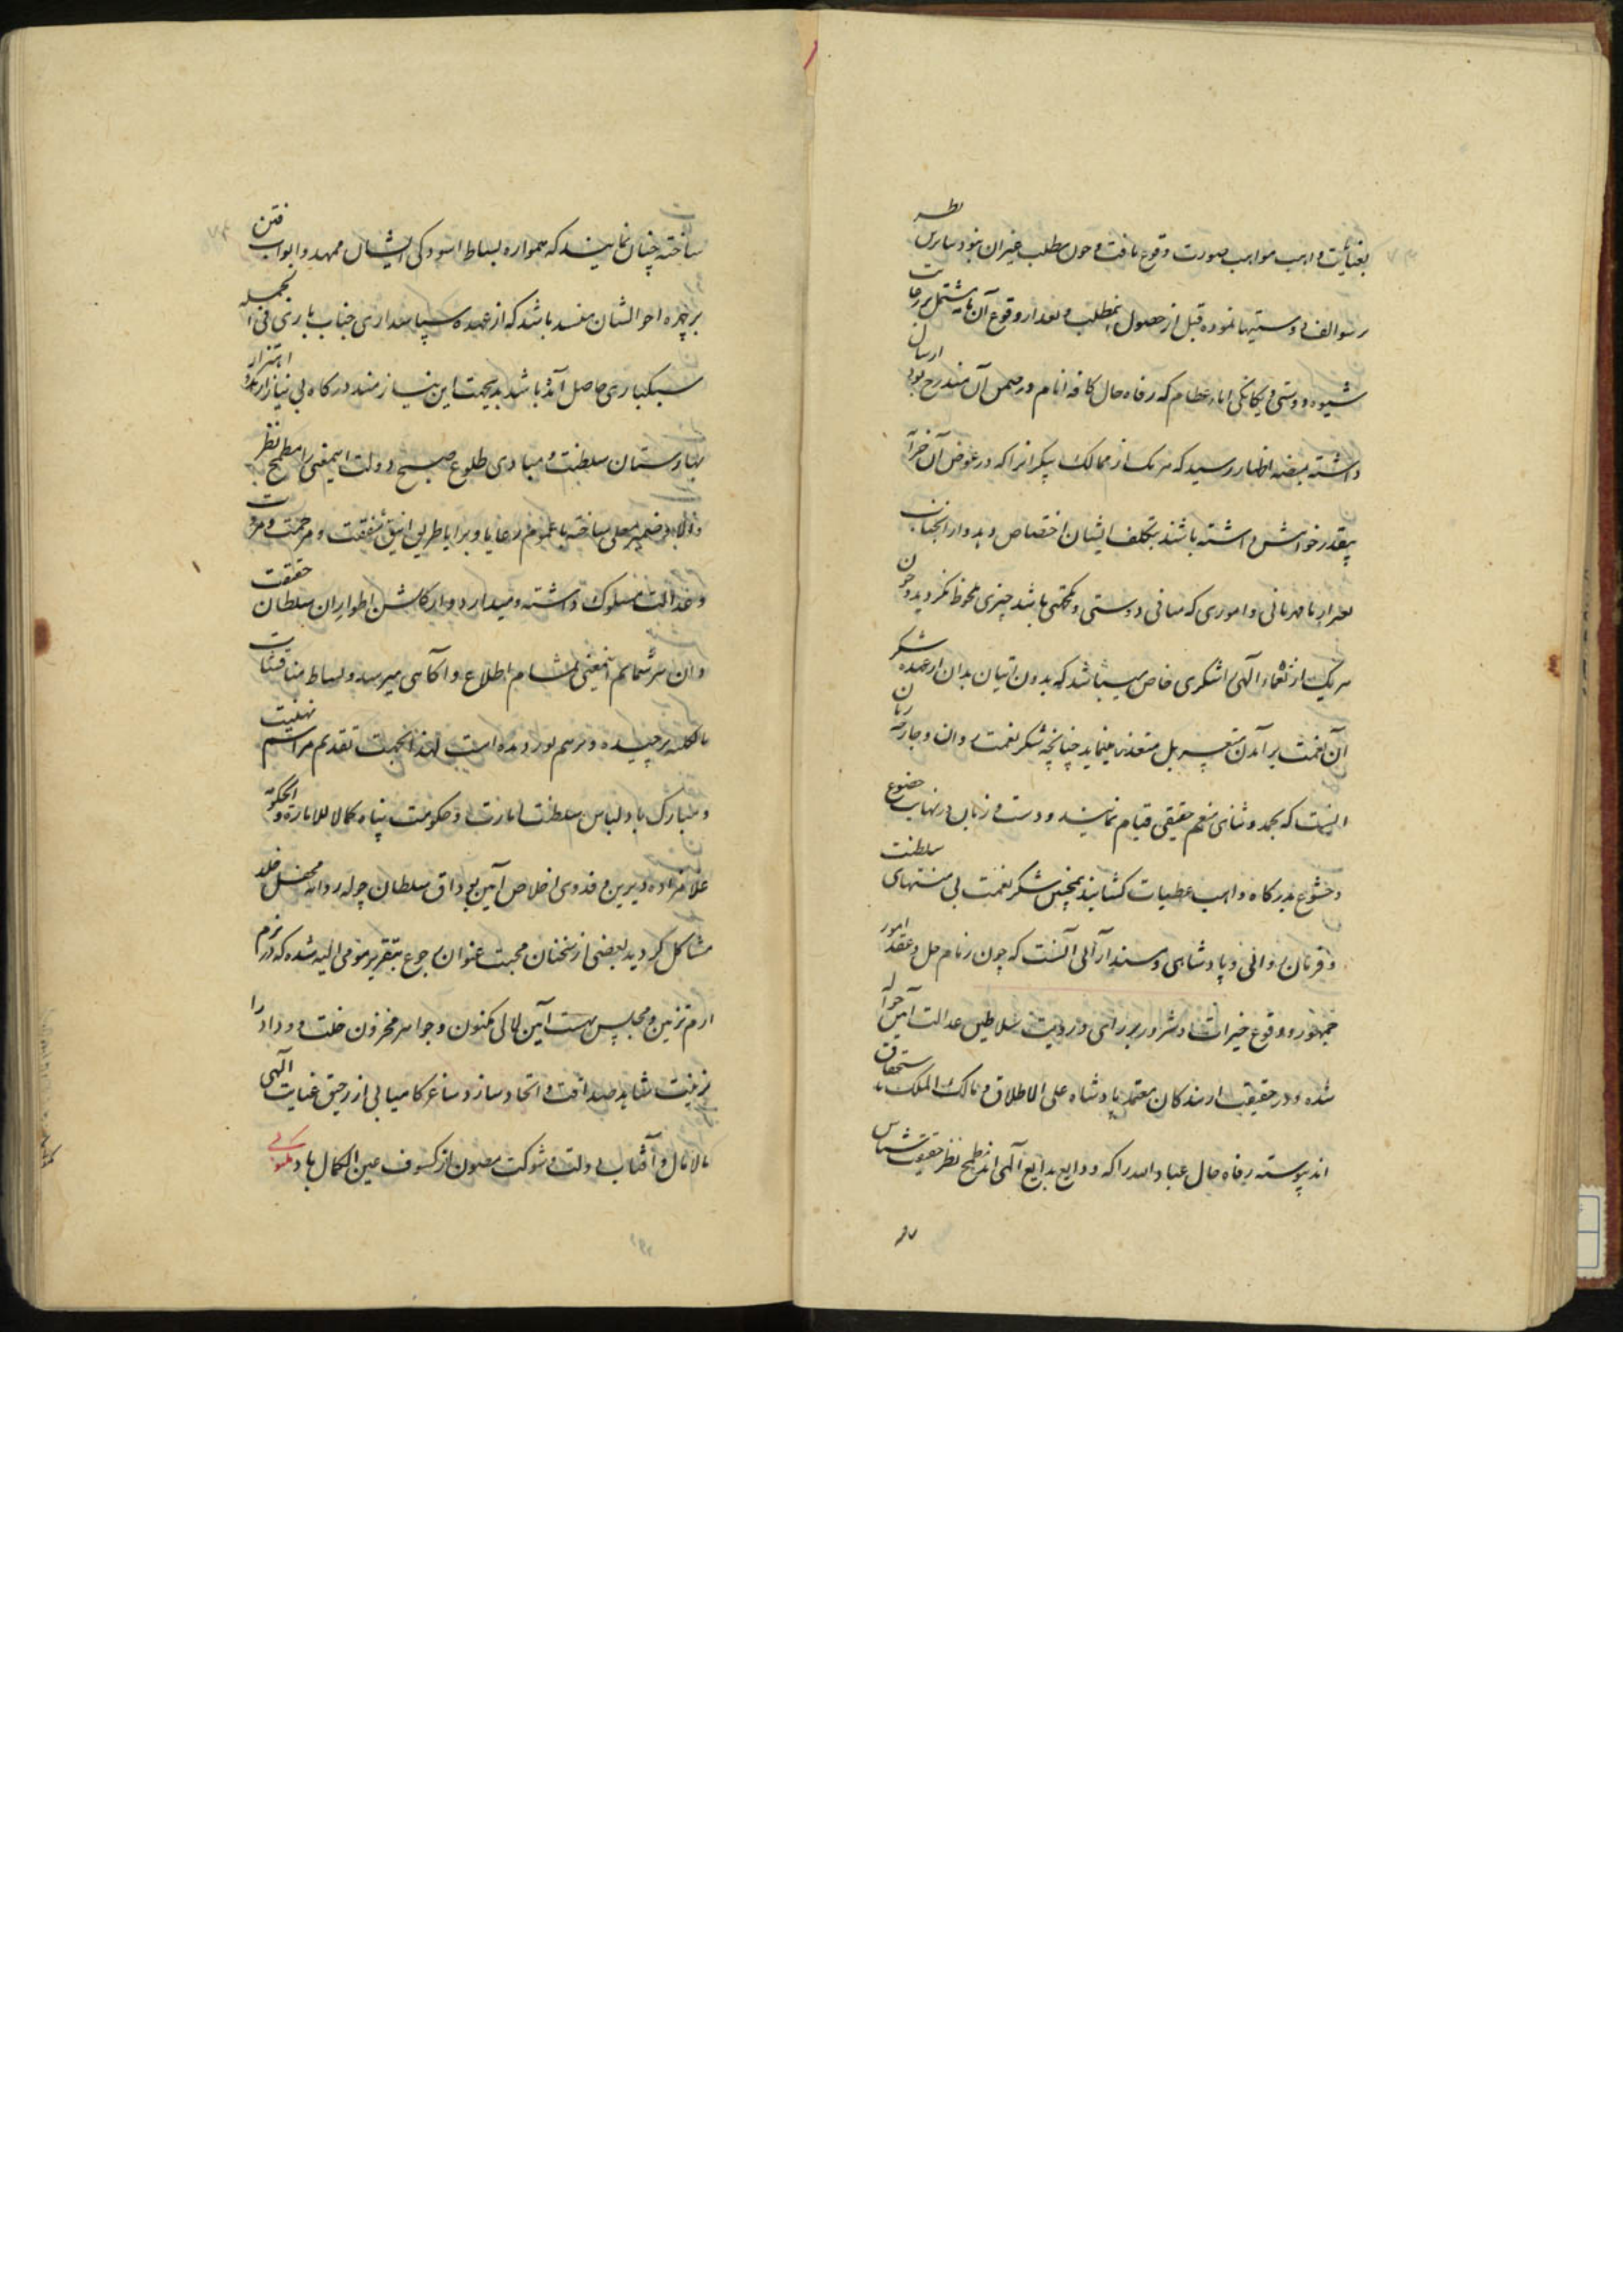 بعنایت واهب مواهب صورت وقوع یافت و چون مطلب غیر ازان نبود بنابرین نظر
بر سوالف دوستیها نموده قبل از حصول مطلب و بعد از وقوع آن
شیوه دوستی و یکانکی اباء عظام که رفاه حال کافه انام در ضمن آن مندرج بود ارسال
داشته اظهار رسید که هر یک از ممالک که در عوض آن
بیقدر خواهش داشته باشند بتکلف ایشان اختصاص دهد و از آنجناب
بغیر از نامهربانی و اموری که منافی دوستی باشد چیزی ملحوظ نکردید و چون
هر یک از نعماء الهی را شکری خاص میباشد که بدون اتیان بدان از عهده شکر
آن نعمت بر آمدن متعسر بل متعذر مینماید چنانچه شکر نعمت روان و جارحه زبان
اینست که بحمد و ثنای منعم حقیقی قیام نمایند و دست و زبان در نهایت خضوع
و خشوع بدرکاه واهب عطیات کشایند همچنین شکر نعمت بی منتهای سلطنت
و فرمان روائی و پادشاهی و مسند آرائی آنست که چون زمام حل و عقد امور
جمهور و وقوع خیرات و شرور بر رای و رویت سلاطین عدالت آیین
شده و در حقیقت از بندکان معتمد پادشاه علی الاطلاق و مالک الملک باستحقاق
اند پیوسته رفاه حال عباد الله را که ودایع بدایع الهی اند مطمح نظر حقیقت شناس
ساخته چنان نمایند که همواره بساط آسودکی ایشان ممهد و ابواب فتن
بر چهره احوالشان منسد باشد که از عهده سپاسداری جناب باری فی الجمله
سبکباری حاصل آمده باشد بدین جهت این نیازمند درکاه بی نیاز از اهتزاز
بهارستان سلطنت و مبادی طلوع صبح دولت اینمعنی را مطمح نظر
ضمیر معلی ساخته با عموم رعایا و برایا طریق انیق شفقت و مرحمت و مروت
و عدالت مسلوک داشته و میدارد و از کلشن اطوار ان سلطان حقیقت
شمایم اینمعنی بمشام اطلاع و آکاهی میرسد و بساط مناقشات
بالکلیه برچیده و درهم نوردیده است لهذا بجهت تقدیم مراسم تهنیت
و مبارک باد لباس سلطنت امارت و حکومت پناه کمالا للامارة والحکومة
غلامزاده دیرین و فدوی اخلاص آیین بوداق سلطان چوله روانه محفل خلد
مشاکل کردید بعضی از سخنان محبت عنوان رجوع بتقریر مومی الیه شده که در بزم
ارم تزیین و مجلس بهشت آیین لآلی مکنون و جواهر مخزون خلت و وداد را
زینت شاهد صداقت و اتحاد سازد ساغر کامیابی از رحیق عنایت الهی
مالامال و آفتاب دولت و شوکت مصون از کسوف عین الکمال باد